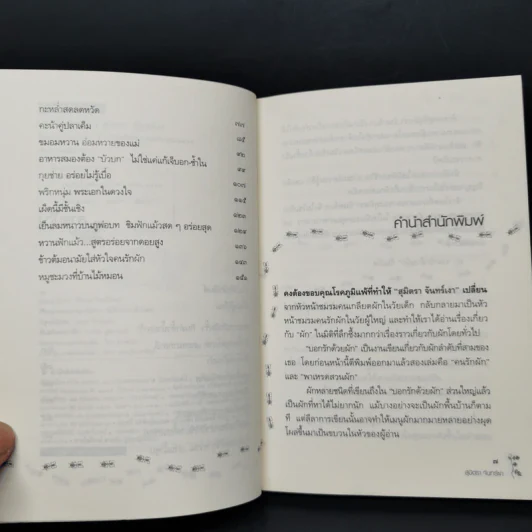 กะหล่ำสดลดหวัด
คะน้าคู่ปลาเค็ม ๗๗
ขมอมหวาน อ่อมหวายของแม่ ๘๕
อาหารสมองต้อง "บัวบก" ไม่ใช่แค่แก้เจ็บอก-ช้ำใน ๙๒
กุยช่าย อร่อยไม่รู้เบื่อ ๙๙
พริกหนุ่ม พระเอกในดวงใจ ๑๐๗
เผ็ดนี้มีชั้นเชิง ๑๑๕
เย็นลมหนาวบนภูพ่อบท ชิมผักแม้วสด ๆ อร่อยสุด
หวานฟักแม้ว...สูตรอร่อยจากดอยสูง
ข้าวต้มอนามัยใส่หัวใจคนรักผัก
หมูชะมวงที่บ้านไม้หมอน ๑๕๑
คำนำสำนักพิมพ์
คงต้องขอบคุณโรคภูมิแพ้ที่ทำให้ "สุมิตรา จันทร์เงา" เปลี่ยน
จากหัวหน้าชมรมคนเกลียดผักในวัยเด็ก กลับกลายมาเป็นหัว
หน้าชมรมคนรักผักในวัยผู้ใหญ่ และทำให้เราได้อ่านเรื่องเกี่ยว
กับ "ผัก" ในมิติที่ลึกซึ้งมากกว่าเรื่องราวเกี่ยวกับผักโดยทั่วไป
"บอกรักด้วยผัก" เป็นงานเขียนเกี่ยวกับผักลำดับที่สามของ
เธอ โดยก่อนหน้านี้ตีพิมพ์ออกมาแล้วสองเล่มคือ "คนรักผัก"
และ "พาเหรดสวนผัก"
ผักหลายชนิดที่เขียนถึงใน "บอกรักด้วยผัก" ส่วนใหญ่แล้ว
เป็นผักที่หาได้ไม่ยากนัก แม้บางอย่างจะเป็นผักพื้นบ้านก็ตาม
ที แต่ลีลาการเขียนนั้นอาจทำให้เมนูผักมากมายหลายอย่างผุด
โผล่ขึ้นมาเป็นขบวนในหัวของผู้อ่าน
๗
สุมิตรา จันทร์เงา